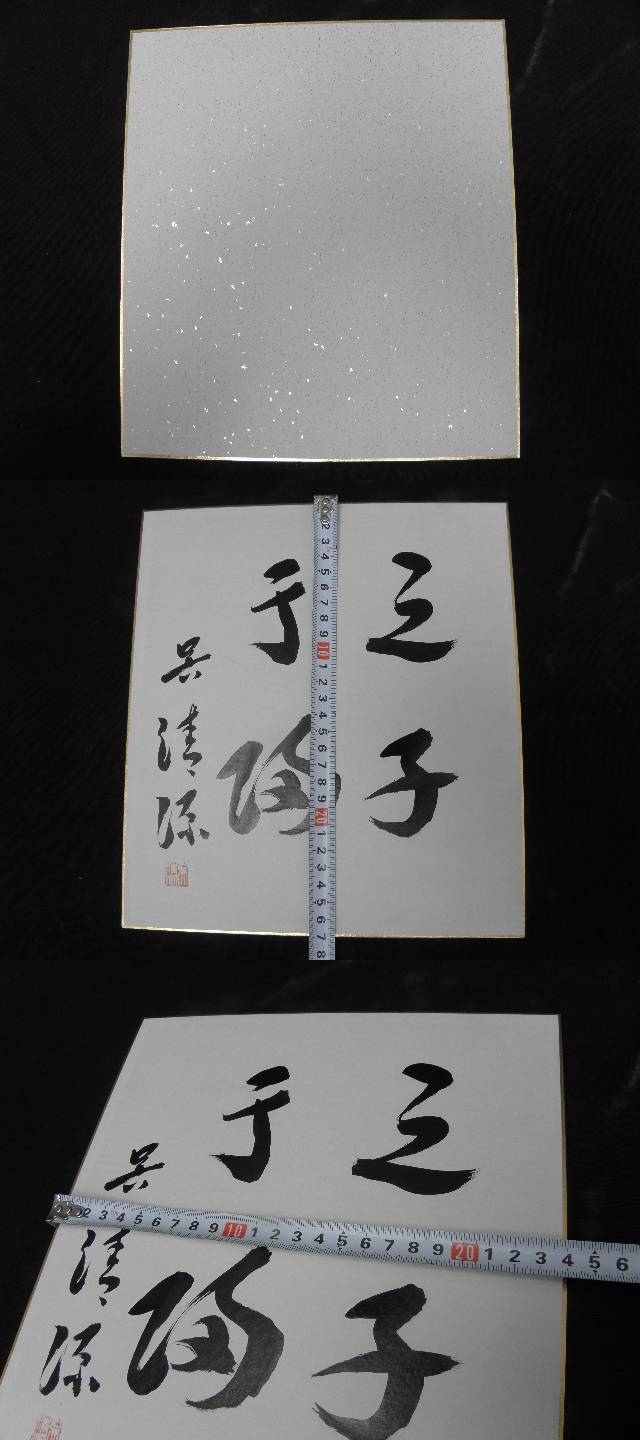 之子
于歸
呉清源
2 3 4 5 6 7 8 9 10 1 2 3 4 5 6 7 8 9 20 1 2 3 4 5 6 7 8
之子
于歸
呉清源
2 3 4 5 6 7 8 9 10 1 2 3 4 5 6 7 8 9 20 1 2 3 4 5 6